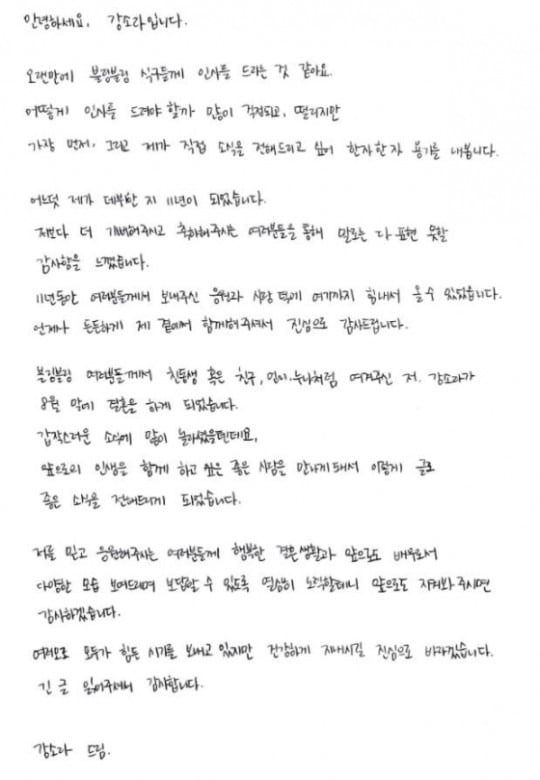 안녕하세요, 강소라입니다.
오랜만에 블링블링 식구들께 인사를 드리는 것 같아요.
어떻게 인사를 드려야 할까 많이 걱정되고, 떨리지만
가장 먼저, 그리고 제가 직접 소식을 전해드리고 싶어 한자 한자 용기를 내봅니다.
어느덧 제가 데뷔한 지 11년이 되었습니다.
저보다 더 기뻐해주시고 축하해주시는 여러분들을 통해 말로는 다 표현 못할
감사함을 느꼈습니다.
11년동안 여러분들께서 보내주신 응원과 사랑 덕에 여기까지 힘내서 올 수 있었습니다.
언제나 든든하게 제 곁에서 함께해주셔서 진심으로 감사드립니다.
블링블링 여러분들께서 친동생 혹은 친구, 언니·누나처럼 여겨주신 저, 강소라가
8월 말에 결혼을 하게 되었습니다.
갑작스러운 소식에 많이 놀라셨을텐데요,
앞으로의 인생을 함께 하고 싶은 좋은 사람을 만나게 돼서 이렇게 글로
좋은 소식을 전해드리게 되었습니다.
저를 믿고 응원해주시는 여러분들께 행복한 결혼생활과 앞으로도 배우로서
다양한 모습 보여드리며 보답할 수 있도록 열심히 노력할테니 앞으로도 지켜봐 주시면
감사하겠습니다.
여러모로 모두가 힘든 시기를 보내고 있지만 건강하게 지내시길 진심으로 바라겠습니다.
긴 글 읽어주셔서 감사합니다.
강소라 드림.